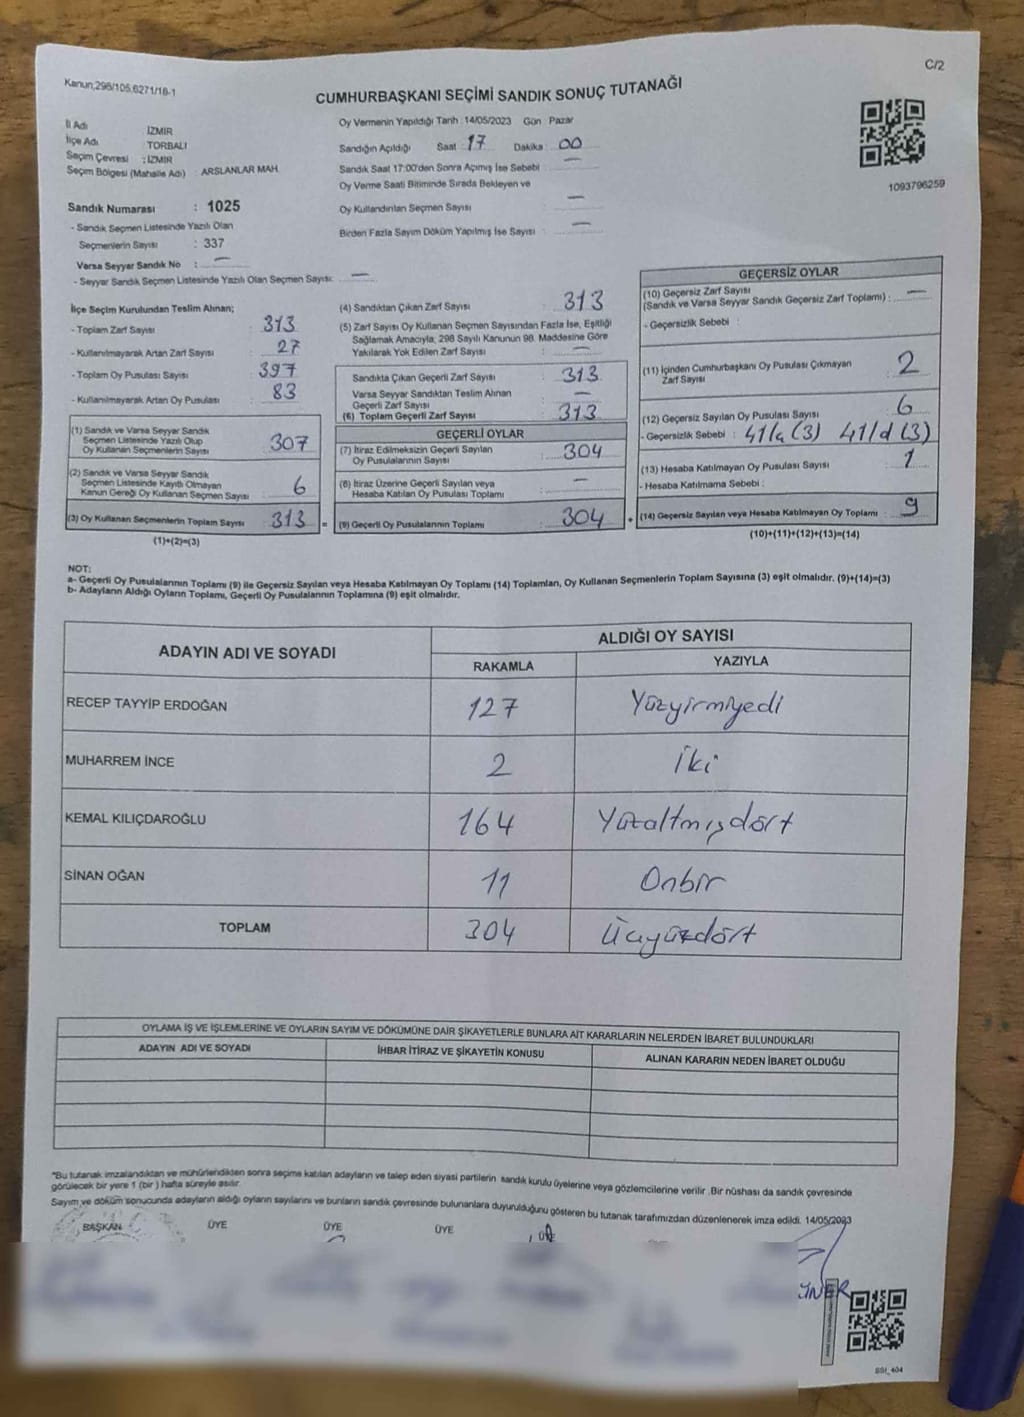 C/2
Kanun;298/105,6271/18-1
CUMHURBAŞKANI SEÇİMİ SANDIK SONUÇ TUTANAĞI
İl Adı İZMİR
İlçe Adı TORBALI
Seçim Çevresi : İZMİR
Seçim Bölgesi (Mahalle Adı) : ARSLANLAR MAH.
Sandık Numarası : 1025
- Sandık Seçmen Listesinde Yazılı Olan
Seçmenlerin Sayısı : 337
Varsa Seyyar Sandık No : —
- Seyyar Sandık Seçmen Listesinde Yazılı Olan Seçmen Sayısı: —
Oy Vermenin Yapıldığı Tarih :14/05/2023 Gün : Pazar
Sandığın Açıldığı Saat : 17 Dakika : 00
Sandık Saat 17:00'den Sonra Açımış İse Sebebi : —
Oy Verme Saati Bitiminde Sırada Bekleyen ve
Oy Kullandırılan Seçmen Sayısı : —
Birden Fazla Sayım Döküm Yapılmış İse Sayısı : —
1093796259
İlçe Seçim Kurulundan Teslim Alınan;
- Toplam Zarf Sayısı : 313
- Kullanılmayarak Artan Zarf Sayısı : 27
- Toplam Oy Pusulası Sayısı : 397
- Kullanılmayarak Artan Oy Pusulası : 83
(1) Sandık ve Varsa Seyyar Sandık
Seçmen Listesinde Yazılı Olup
Oy Kullanan Seçmenlerin Sayısı : 307
(2) Sandık ve Varsa Seyyar Sandık
Seçmen Listesinde Kayıtlı Olmayan
Kanun Gereği Oy Kullanan Seçmen Sayısı : 6
(3) Oy Kullanan Seçmenlerin Toplam Sayısı : 313 =
(1)+(2)=(3)
(4) Sandıktan Çıkan Zarf Sayısı : 313
(5) Zarf Sayısı Oy Kullanan Seçmen Sayısından Fazla İse, Eşitliği
Sağlamak Amacıyla, 298 Sayılı Kanunun 98. Maddesine Göre
Yakılarak Yok Edilen Zarf Sayısı : —
Sandıkta Çıkan Geçerli Zarf Sayısı : 313
Varsa Seyyar Sandıktan Teslim Alınan
Geçerli Zarf Sayısı : —
(6) Toplam Geçerli Zarf Sayısı : 313
GEÇERLİ OYLAR
(7) İtiraz Edilmeksizin Geçerli Sayılan
Oy Pusulalarının Sayısı : 304
(8) İtiraz Üzerine Geçerli Sayılan veya
Hesaba Katılan Oy Pusulası Toplamı : —
(9) Geçerli Oy Pusulalarının Toplamı : 304 +
GEÇERSİZ OYLAR
(10) Geçersiz Zarf Sayısı
(Sandık ve Varsa Seyyar Sandık Geçersiz Zarf Toplamı) : —
- Geçersizlik Sebebi :
(11) İçinden Cumhurbaşkanı Oy Pusulası Çıkmayan
Zarf Sayısı : 2
(12) Geçersiz Sayılan Oy Pusulası Sayısı : 6
- Geçersizlik Sebebi : 41/a (3) 41/d (3)
(13) Hesaba Katılmayan Oy Pusulası Sayısı : 1
- Hesaba Katılmama Sebebi :
(14) Geçersiz Sayılan veya Hesaba Katılmayan Oy Toplamı : 9
(10)+(11)+(12)+(13)=(14)
NOT:
a- Geçerli Oy Pusulalarının Toplamı (9) ile Geçersiz Sayılan veya Hesaba Katılmayan Oy Toplamı (14) Toplamları, Oy Kullanan Seçmenlerin Toplam Sayısına (3) eşit olmalıdır. (9)+(14)=(3)
b- Adayların Aldığı Oyların Toplamı, Geçerli Oy Pusulalarının Toplamına (9) eşit olmalıdır.
ADAYIN ADI VE SOYADI ALDIĞI OY SAYISI
RAKAMLA YAZIYLA
RECEP TAYYİP ERDOĞAN 127 Yüzyirmiyedi
MUHARREM İNCE 2 İki
KEMAL KILIÇDAROĞLU 164 Yüzaltmışdört
SİNAN OĞAN 11 Onbir
TOPLAM 304 Üçyüzdört
OYLAMA İŞ VE İŞLEMLERİNE VE OYLARIN SAYIM VE DÖKÜMÜNE DAİR ŞİKAYETLERLE BUNLARA AİT KARARLARIN NELERDEN İBARET BULUNDUKLARI
ADAYIN ADI VE SOYADI İHBAR İTİRAZ VE ŞİKAYETİN KONUSU ALINAN KARARIN NEDEN İBARET OLDUĞU
*Bu tutanak imzalandıktan ve mühürlendikten sonra seçime katılan adayların ve talep eden siyasi partilerin sandık kurulu üyelerine veya gözlemcilerine verilir .Bir nüshası da sandık çevresinde
görülecek bir yere 1 (bir ) hafta süreyle asılır.
Sayım ve döküm sonucunda adayların aldığı oyların sayılarını ve bunların sandık çevresinde bulunanlara duyurulduğunu gösteren bu tutanak tarafımızdan düzenlenerek imza edildi. 14/05/2023
BAŞKAN ÜYE ÜYE ÜYE ÜYE
SSI_404